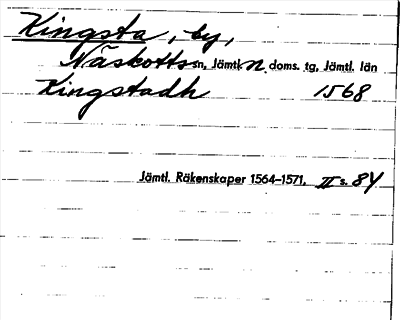 Kingsta, by,
Näskotts sn, Jämtl. n. doms. tg, Jämtl. län
Kingstadh 1568
Jämtl. Räkenskaper 1564–1571, II s. 84